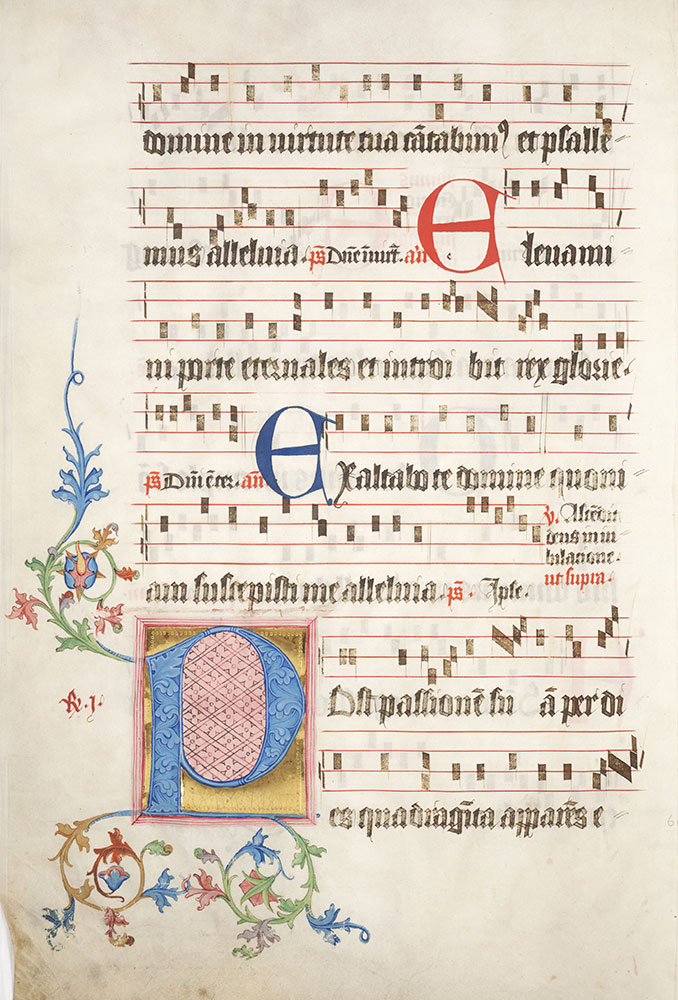 domine in virtute tua cātabimꝰ et psalle
mus alleluia. ps̄ Dn̄e in uirt. an̄. Eleuami
ni porte eternales et introi bit rex glorie.
ps̄ Dn̄i est ter. an̄ Exaltabo te domine quoni
am suscepisti me alleluia. ps̄. Ipse.
V. Ascēdit
deus in iu
bilacione.
ut supra.
R. j.
POst passionē su ā per di
es quadragīta apparēs e